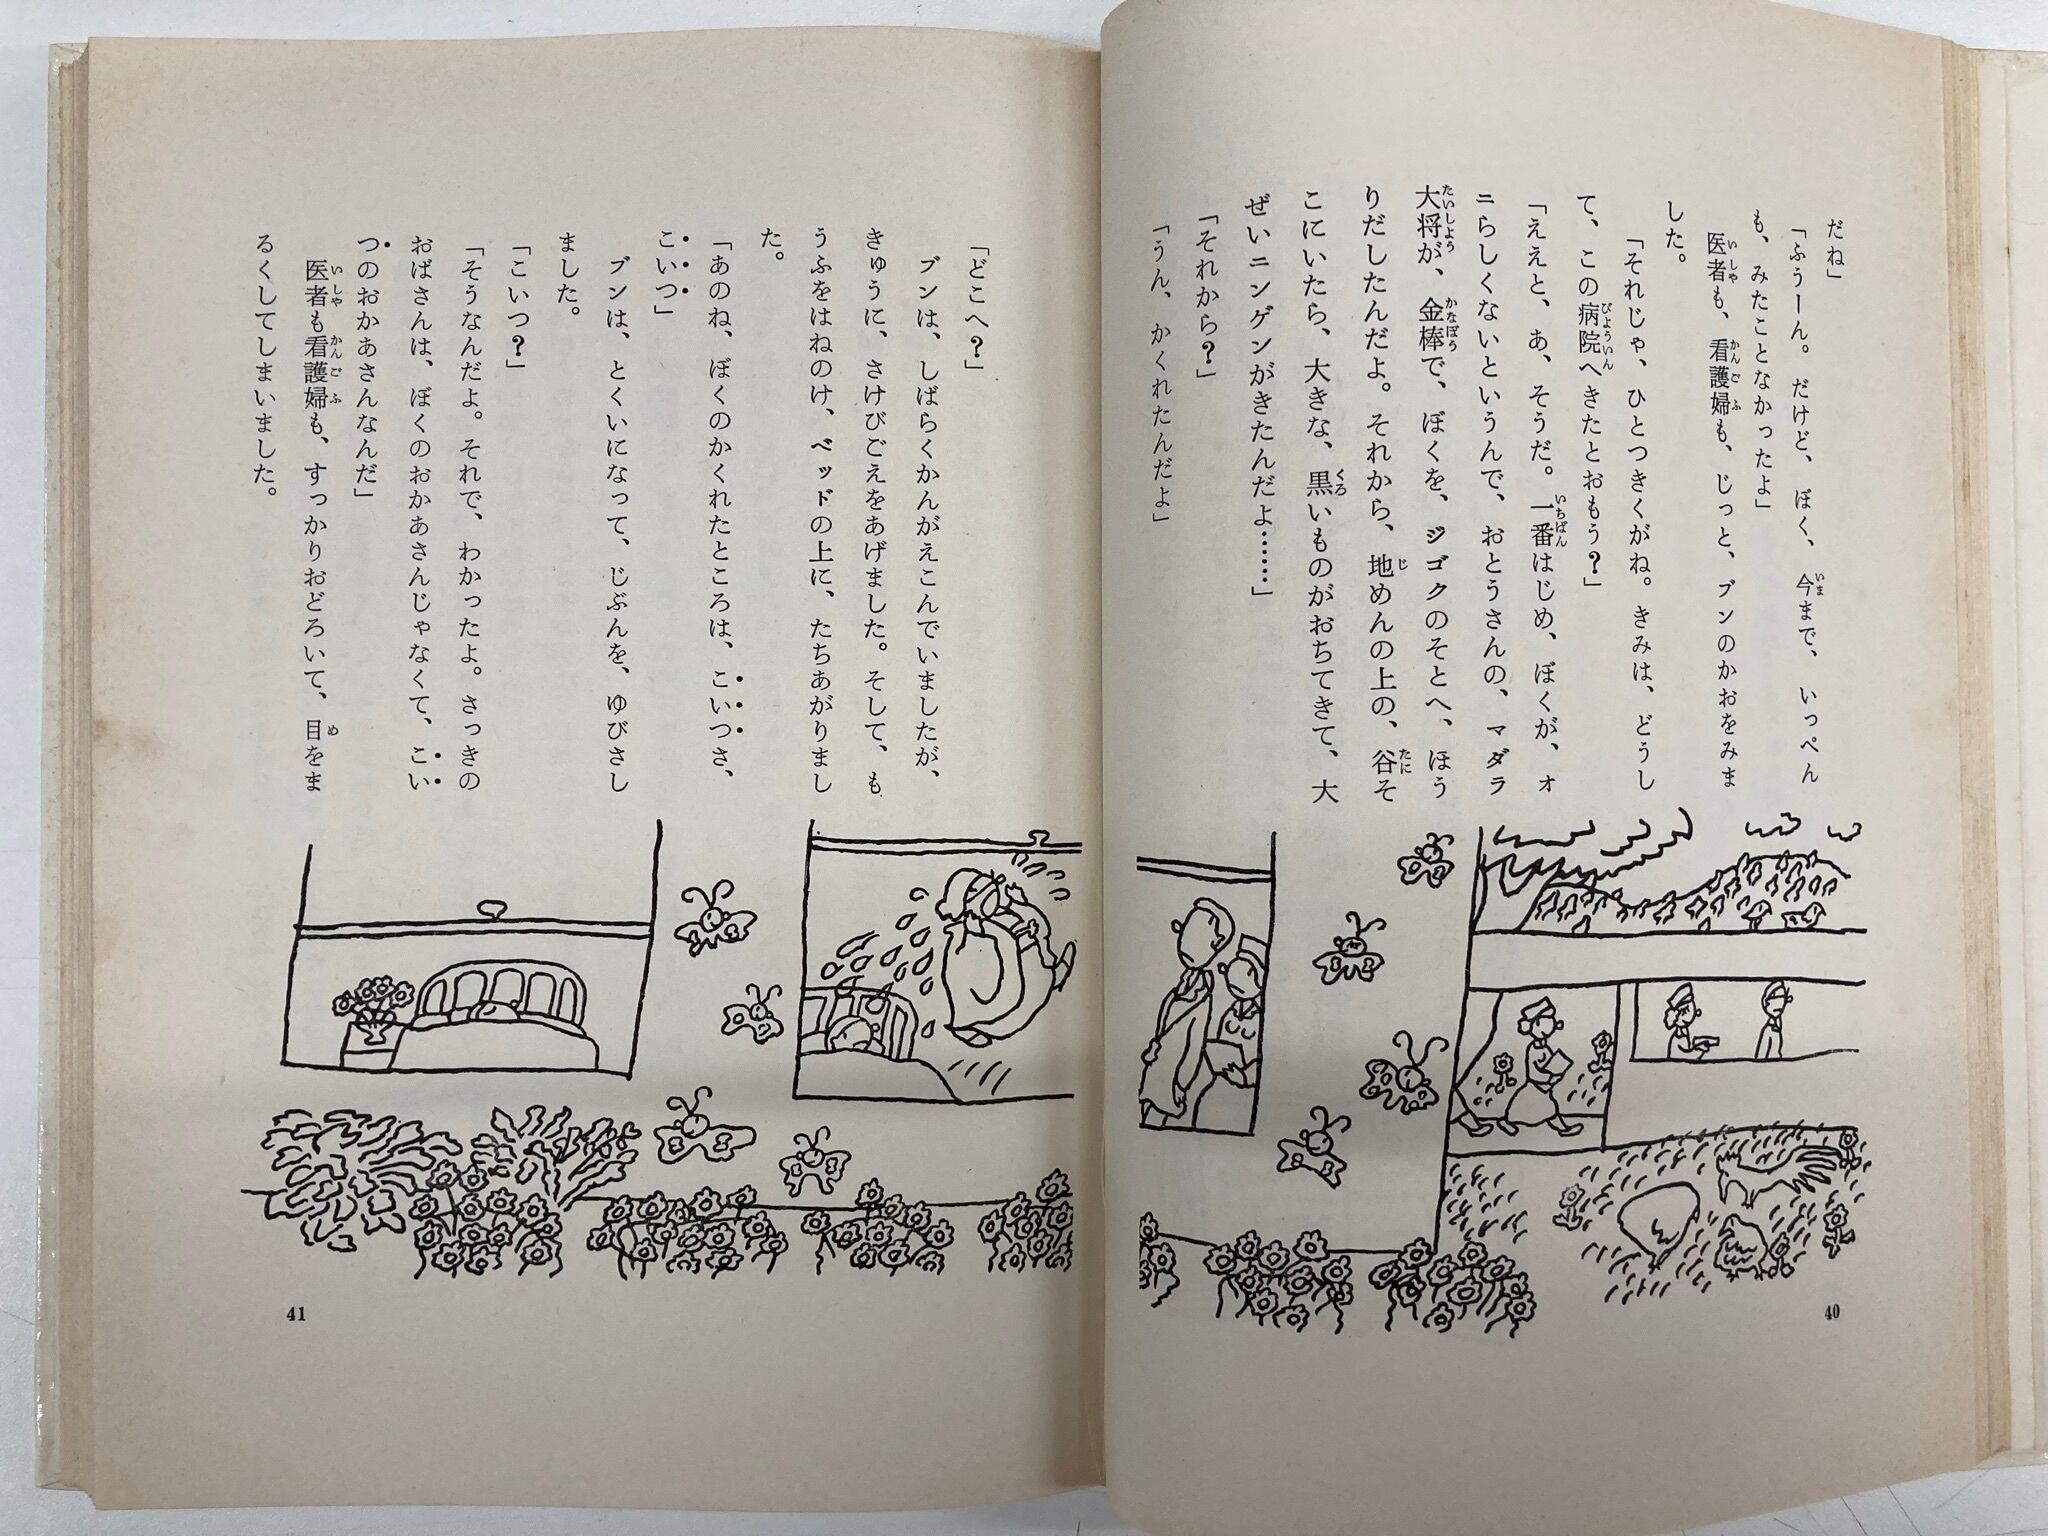 だね」
「ふうーん。だけど、ぼく、今まで、いっぺん
も、みたことなかったよ」
医者も、看護婦も、じっと、ブンのかおをみま
した。
「それじゃ、ひとつきくがね。きみは、どうし
て、この病院へきたとおもう？」
「ええと、あ、そうだ。一番はじめ、ぼくが、オ
ニらしくないというんで、おとうさんの、マダラ
大将が、金棒で、ぼくを、ジゴクのそとへ、ほう
りだしたんだよ。それから、地めんの上の、谷そ
こにいたら、大きな、黒いものがおちてきて、大
ぜいニンゲンがきたんだよ……」
「それから？」
「うん、かくれたんだよ」
40
「どこへ？」
ブンは、しばらくかんがえこんでいましたが、
きゅうに、さけびごえをあげました。そして、も
うふをはねのけ、ベッドの上に、たちあがりまし
た。
「あのね、ぼくのかくれたところは、こいつさ、
こいつ」
ブンは、とくいになって、じぶんを、ゆびさし
ました。
「こいつ？」
「そうなんだよ。それで、わかったよ。さっきの
おばさんは、ぼくのおかあさんじゃなくて、こい
つのおかあさんなんだ」
医者も看護婦も、すっかりおどろいて、目をま
るくしてしまいました。
41